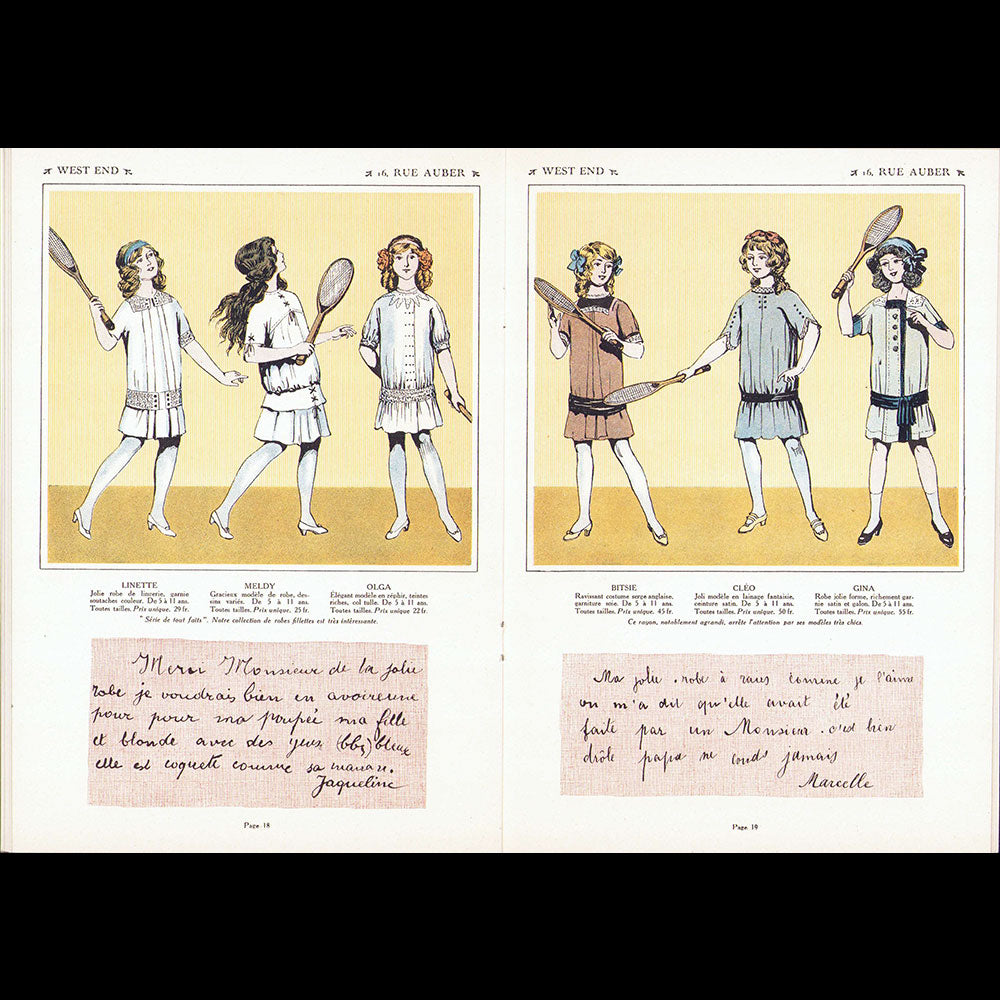 WEST END
16, RUE AUBER
LINETTE
Jolie robe de lingerie, garnie
soutaches couleur. De 5 à 11 ans.
Toutes tailles. Prix unique. 29 fr.
MELDY
Gracieux modèle de robe, des-
sins variés. De 5 à 11 ans.
Toutes tailles. Prix unique. 25 fr.
OLGA
Élégant modèle en zéphir, teintes
riches, col tulle. De 5 à 11 ans.
Toutes tailles. Prix unique 22 fr.
"Série de tout faits". Notre collection de robes fillettes est très intéressante.
Merci Monsieur de la jolie
robe je voudrais bien en avoireune
pour pour ma poupée ma fille
et blonde avec des yeux (bbs) bleux
elle est coquette comme sa maman.
Jaqueline
Page 18
WEST END
16, RUE AUBER
BITSIE
Ravissant costume serge anglaise,
garniture soie. De 5 à 11 ans.
Toutes tailles. Prix unique. 45 fr.
CLÉO
Joli modèle en lainage fantaisie,
ceinture satin. De 5 à 11 ans.
Toutes tailles. Prix unique. 50 fr.
GINA
Robe jolie forme, richement gar-
nie satin et galon. De 5 à 11 ans.
Toutes tailles. Prix unique. 55 fr.
Ce rayon, notablement agrandi, arrête l'attention par ses modèles très chics.
Ma jolie robe à raies comme je l'aime
on m'a dit qu'elle avait été
faite par un Monsieur. c'est bien
drôle papa ne couds jamais
Marcelle
Page 19